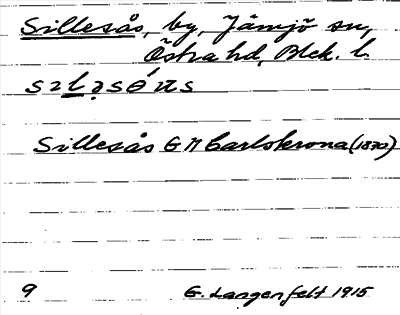 Sillesås, by, Jämjö sn,
Östra hd, Blek. l.
Sillesås G K Carlskrona (1870)
9 G. Langenfelt 1915